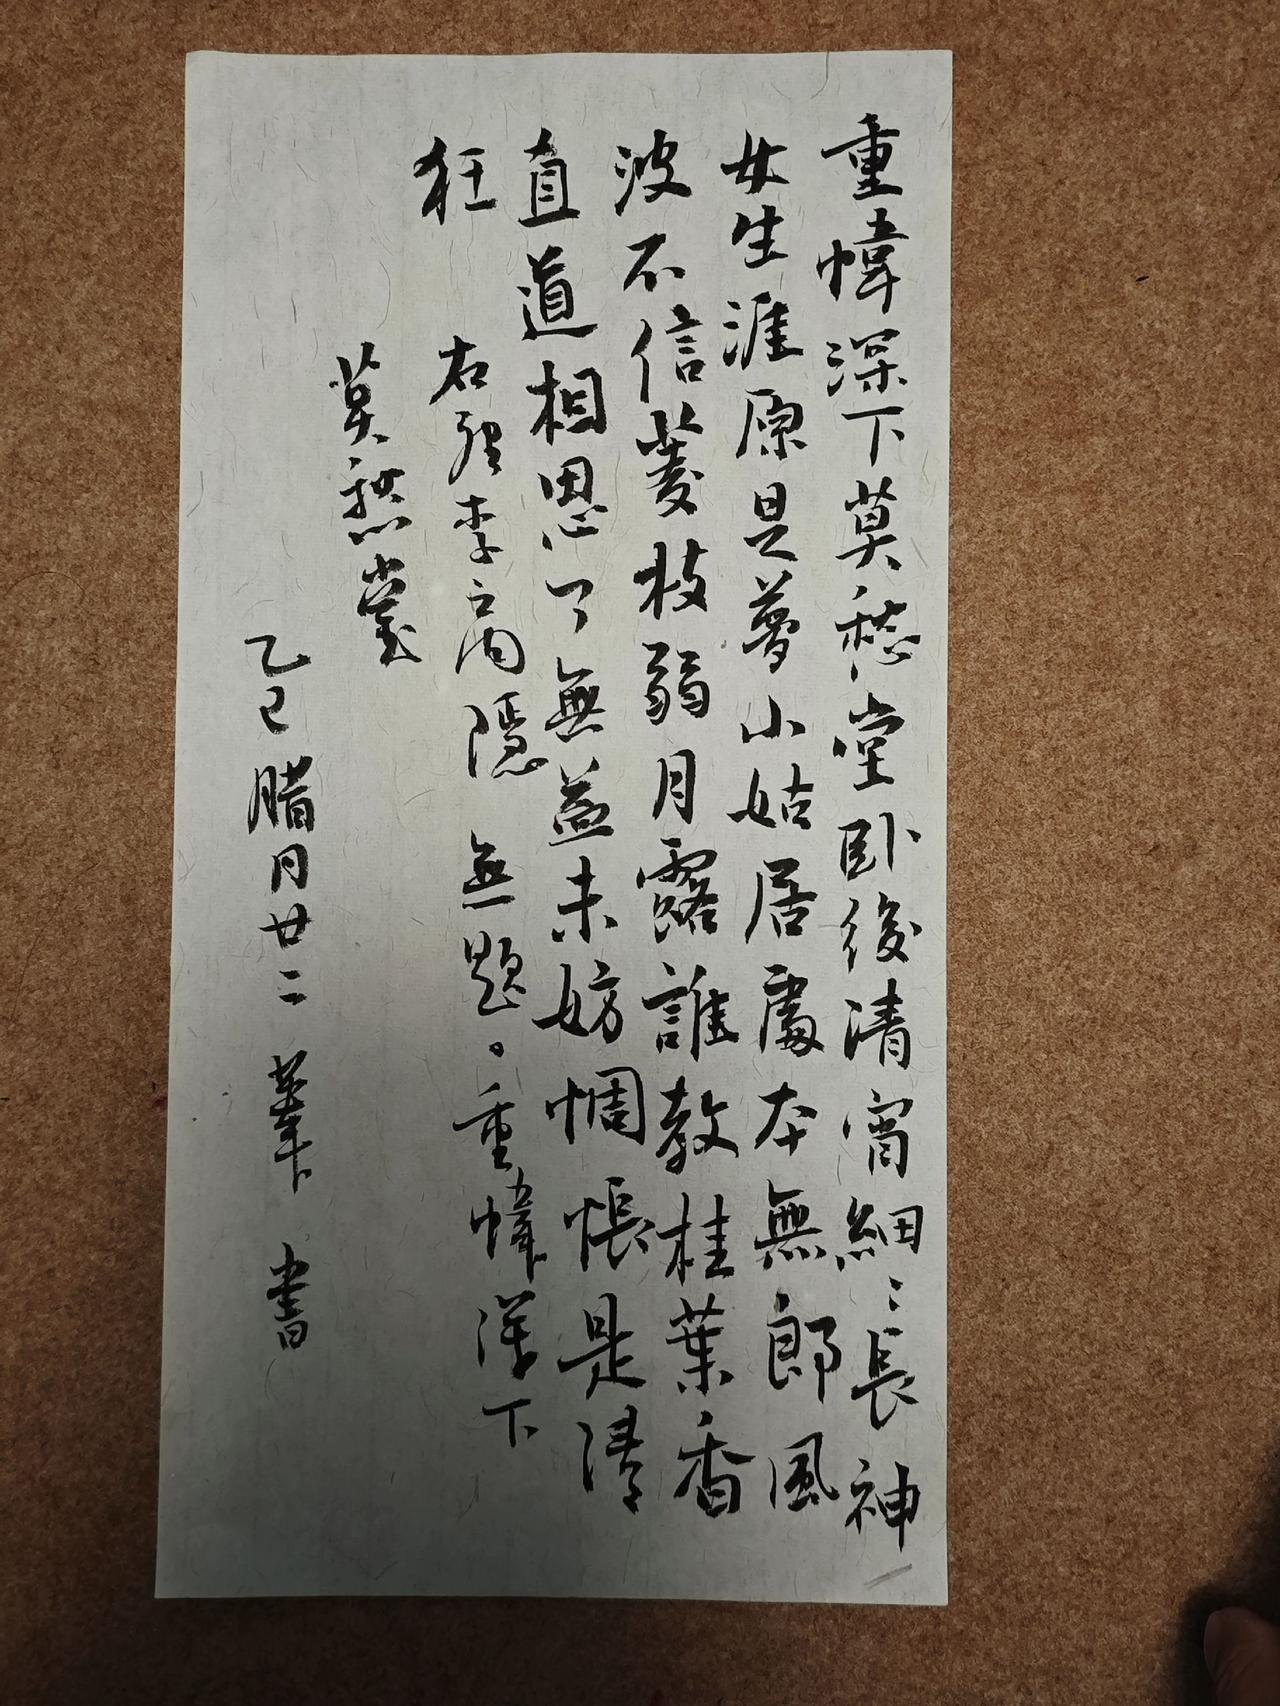 重幃深下莫愁堂卧後清宵細〻長神
女生涯原是夢小姑居處本無郎風
波不信菱枝弱月露誰教桂葉香
直道相思了無益未妨惆悵是清
狂
右録李商隱 無題。重幃深下
莫愁堂
乙巳腊月廿二 華 書